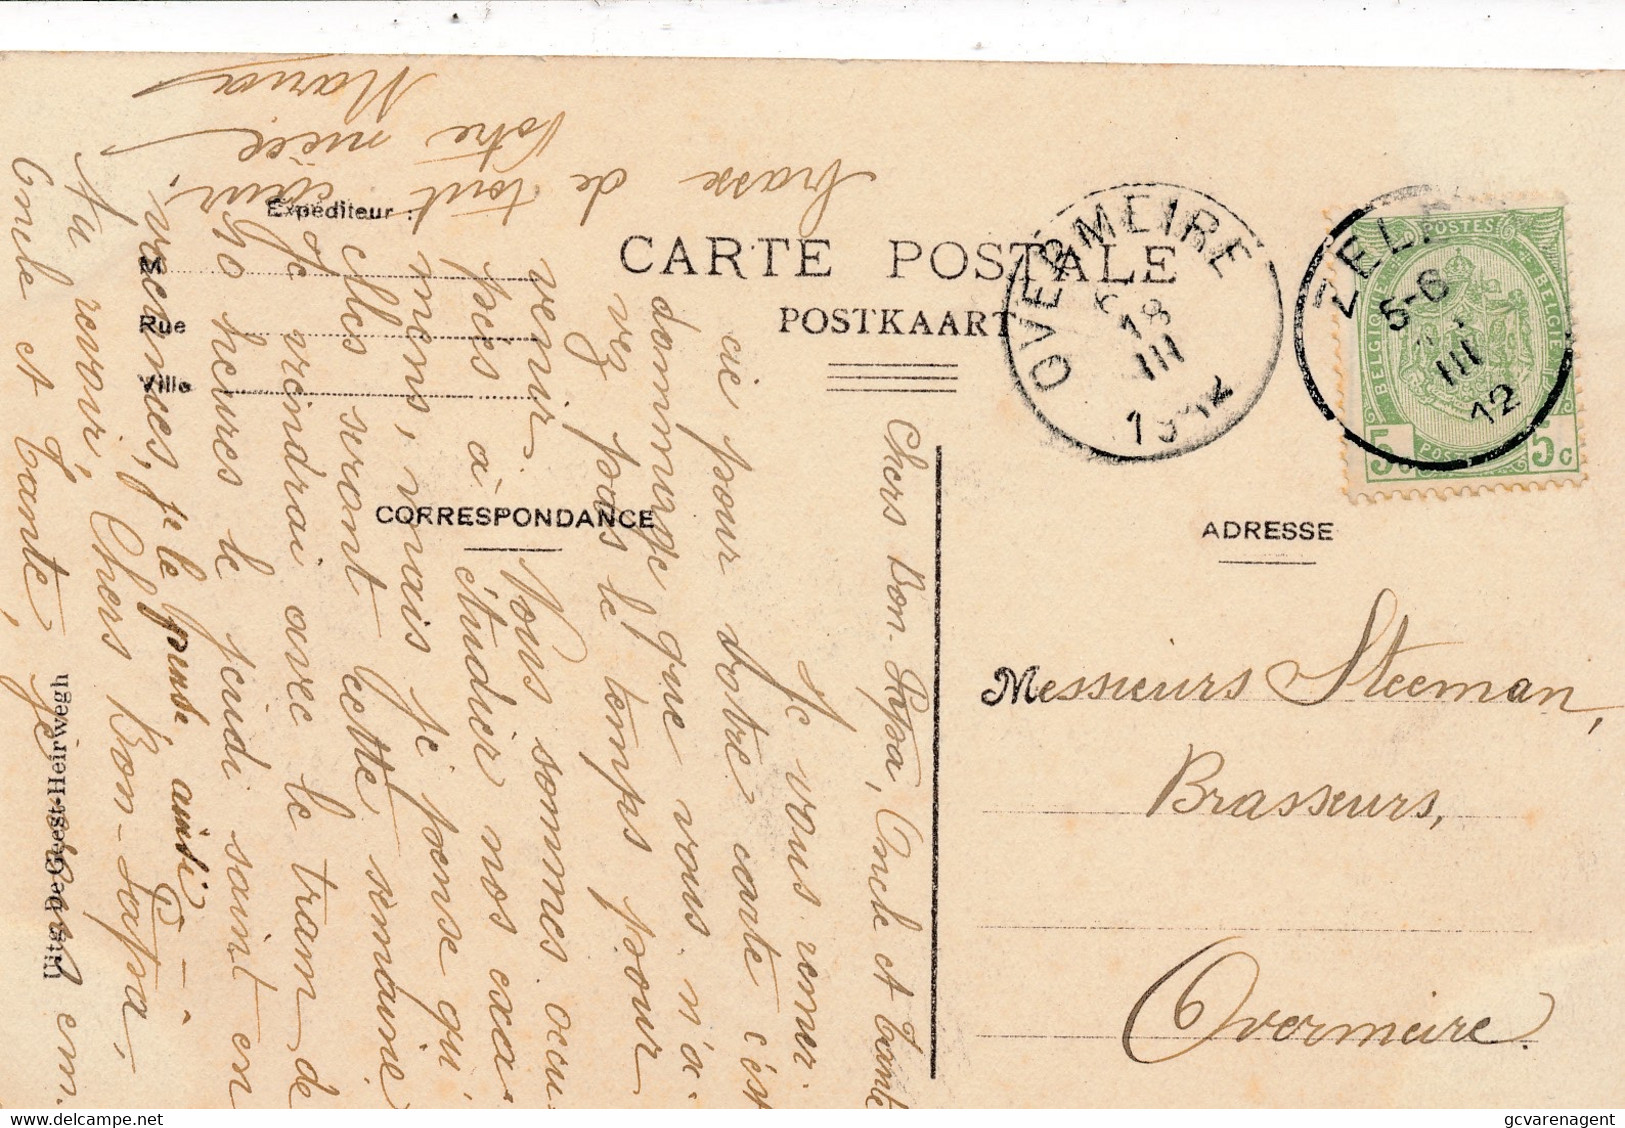 CARTE POSTALE
POSTKAART
Expéditeur :
M
Rue
Ville
CORRESPONDANCE
ADRESSE
Uitg. De Geest-Heirwegh
OVERMEIRE
18
III
1912
ZELE
5-6
III
12
POSTES
BELGIQUE
BELGIE
5c
5c
Messieurs Steeman,
Brasseurs,
Overmeire.
Chers Bon-Papa, Oncle et Tante
Je vous remer-
cie pour votre carte c'est
dommage que vous n'a-
vez pas le temps pour
venir. Nous sommes occu-
pées à étudier nos exa-
mens, mais je pense qu'
elles seront cette semaine
Je viendrai avec le tram de
10 heures le jeudi saint en
vacances, je le pense ainsi
Au revoir, Chers Bon-Papa,
Oncle et Tante, je vous em-
brasse de tout cœur.
Votre nièce
Maria
gcvarenagent